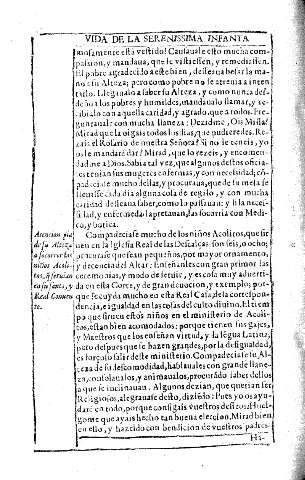 VIDA DE LA SERENISSIMA INFANTA
mosamente està vestido? Causaualo esto mucha com-
passion, y mandaua, que le vistiessen, y remediassen.
El pobre agradecido a este bien, desseaua besar la ma-
no a su Alteza; pero como pobre no se atreuia a inten
tarlo. Llegaualo a saber su Alteza, y como nunca des-
deñò a los pobres y humildes, mandaualo llamar, y re-
cibialo con aquella caridad, y agrado, que a todos. Pre-
guntauale con mucha llaneza: Dezidme, Ois Missa?
Mirad que la oigais todos los dias, que pudieredes. Re-
zais el Rosario de nuestra Señora? Si no le teneis, yo
os le mandarè dar? Mirad, que lo rezeis, y encomen-
dadme a Dios. Sabia tal vez, que algunos destos oficia-
les tenian sus mugeres enfermas, y con necessidad; cō-
padeciase mucho dellas, y procuraua, que de su mesa se
lleuasse cada dia alguna cosa de regalo, y con mucha
caridad desseaua saber, como lo passauan; y si la neces-
sidad, y enfermedad apretauan, las socorria con Medi-
co, y botica.
Atencion piadosa
de su Alteza
a socorrer los
niños Acoli-
tos, q̃ siruen
en su santo, y
Real Conuen-
to.
Compadeciase mucho de los niños Acolitos, que sir-
uen en la Iglesia Real de las Descalças: son seis, o ocho;
procurase que sean pequeños, por mayor ornamento,
y decencia del Altar: Enseñanles con gran primor las
ceremonias, y modo de seruir, y es cosa muy aduerti-
da en esta Corte, y de gran deuocion, y exemplo; por-
que se cuyda mucho en esta Real Casa, de la correspon-
dencia, e igualdad en las cosas del culto diuino. El tiem
po que siruen estos niños en el ministerio de Acoli-
tos, estan bien acomodados; porque tienen sus gajes,
y Maestros que los enseñen virtud, y la lēgua Latina;
pero despues que se hazen grandes, por la desigualdad,
es forçoso salir deste ministerio. Compadeciase su Al-
teza de su descomodidad, hablaualos con grande llane-
za, consolaualos, y animaualos, procurādo saber dellos
a que se inclinauan. Algunos dezian, que querian ser
Religiosos, alegrauase desto, diziēdo: Pues yo os ayu-
darè en todo, porque consigais vuestros desseos: Huel-
gome que ayais hecho tan buena eleccion. Miraldo bien
en ello, y hazeldo con bendicion de vuestros padres.
Ha-